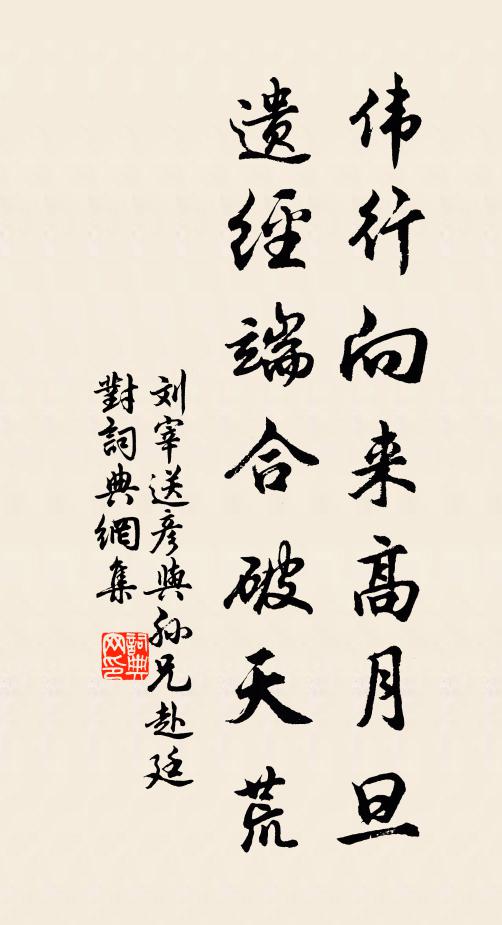 伟行向来高月旦
遗经端合破天荒
刘宰送彦與孙兄赴廷
對詞典網集
詞典网印